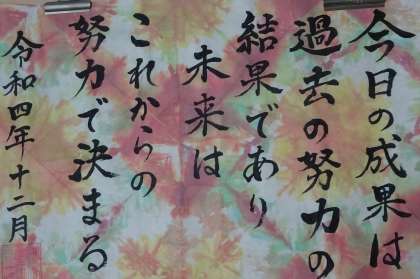 今日の成果は
過去の努力の
結果であり
未来は
これからの
努力で決まる
令和四年十二月